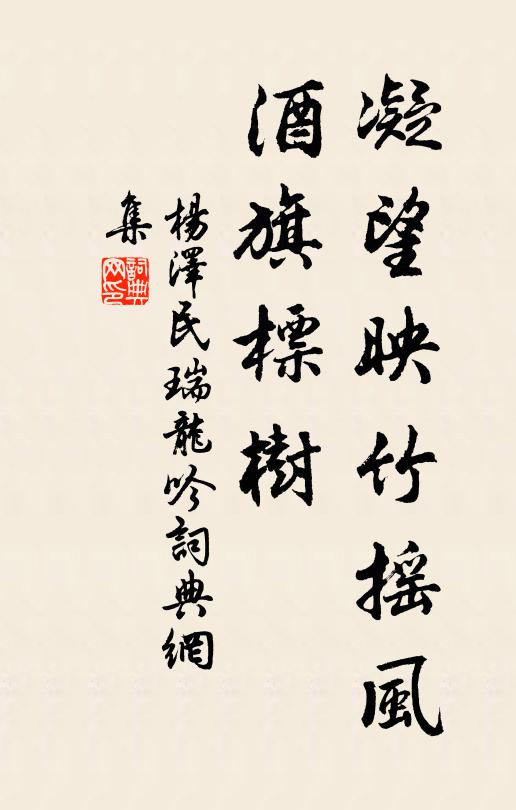 凝望映竹摇風
酒旗標樹
楊澤民瑞龍吟詞典網
集
詞典
网印